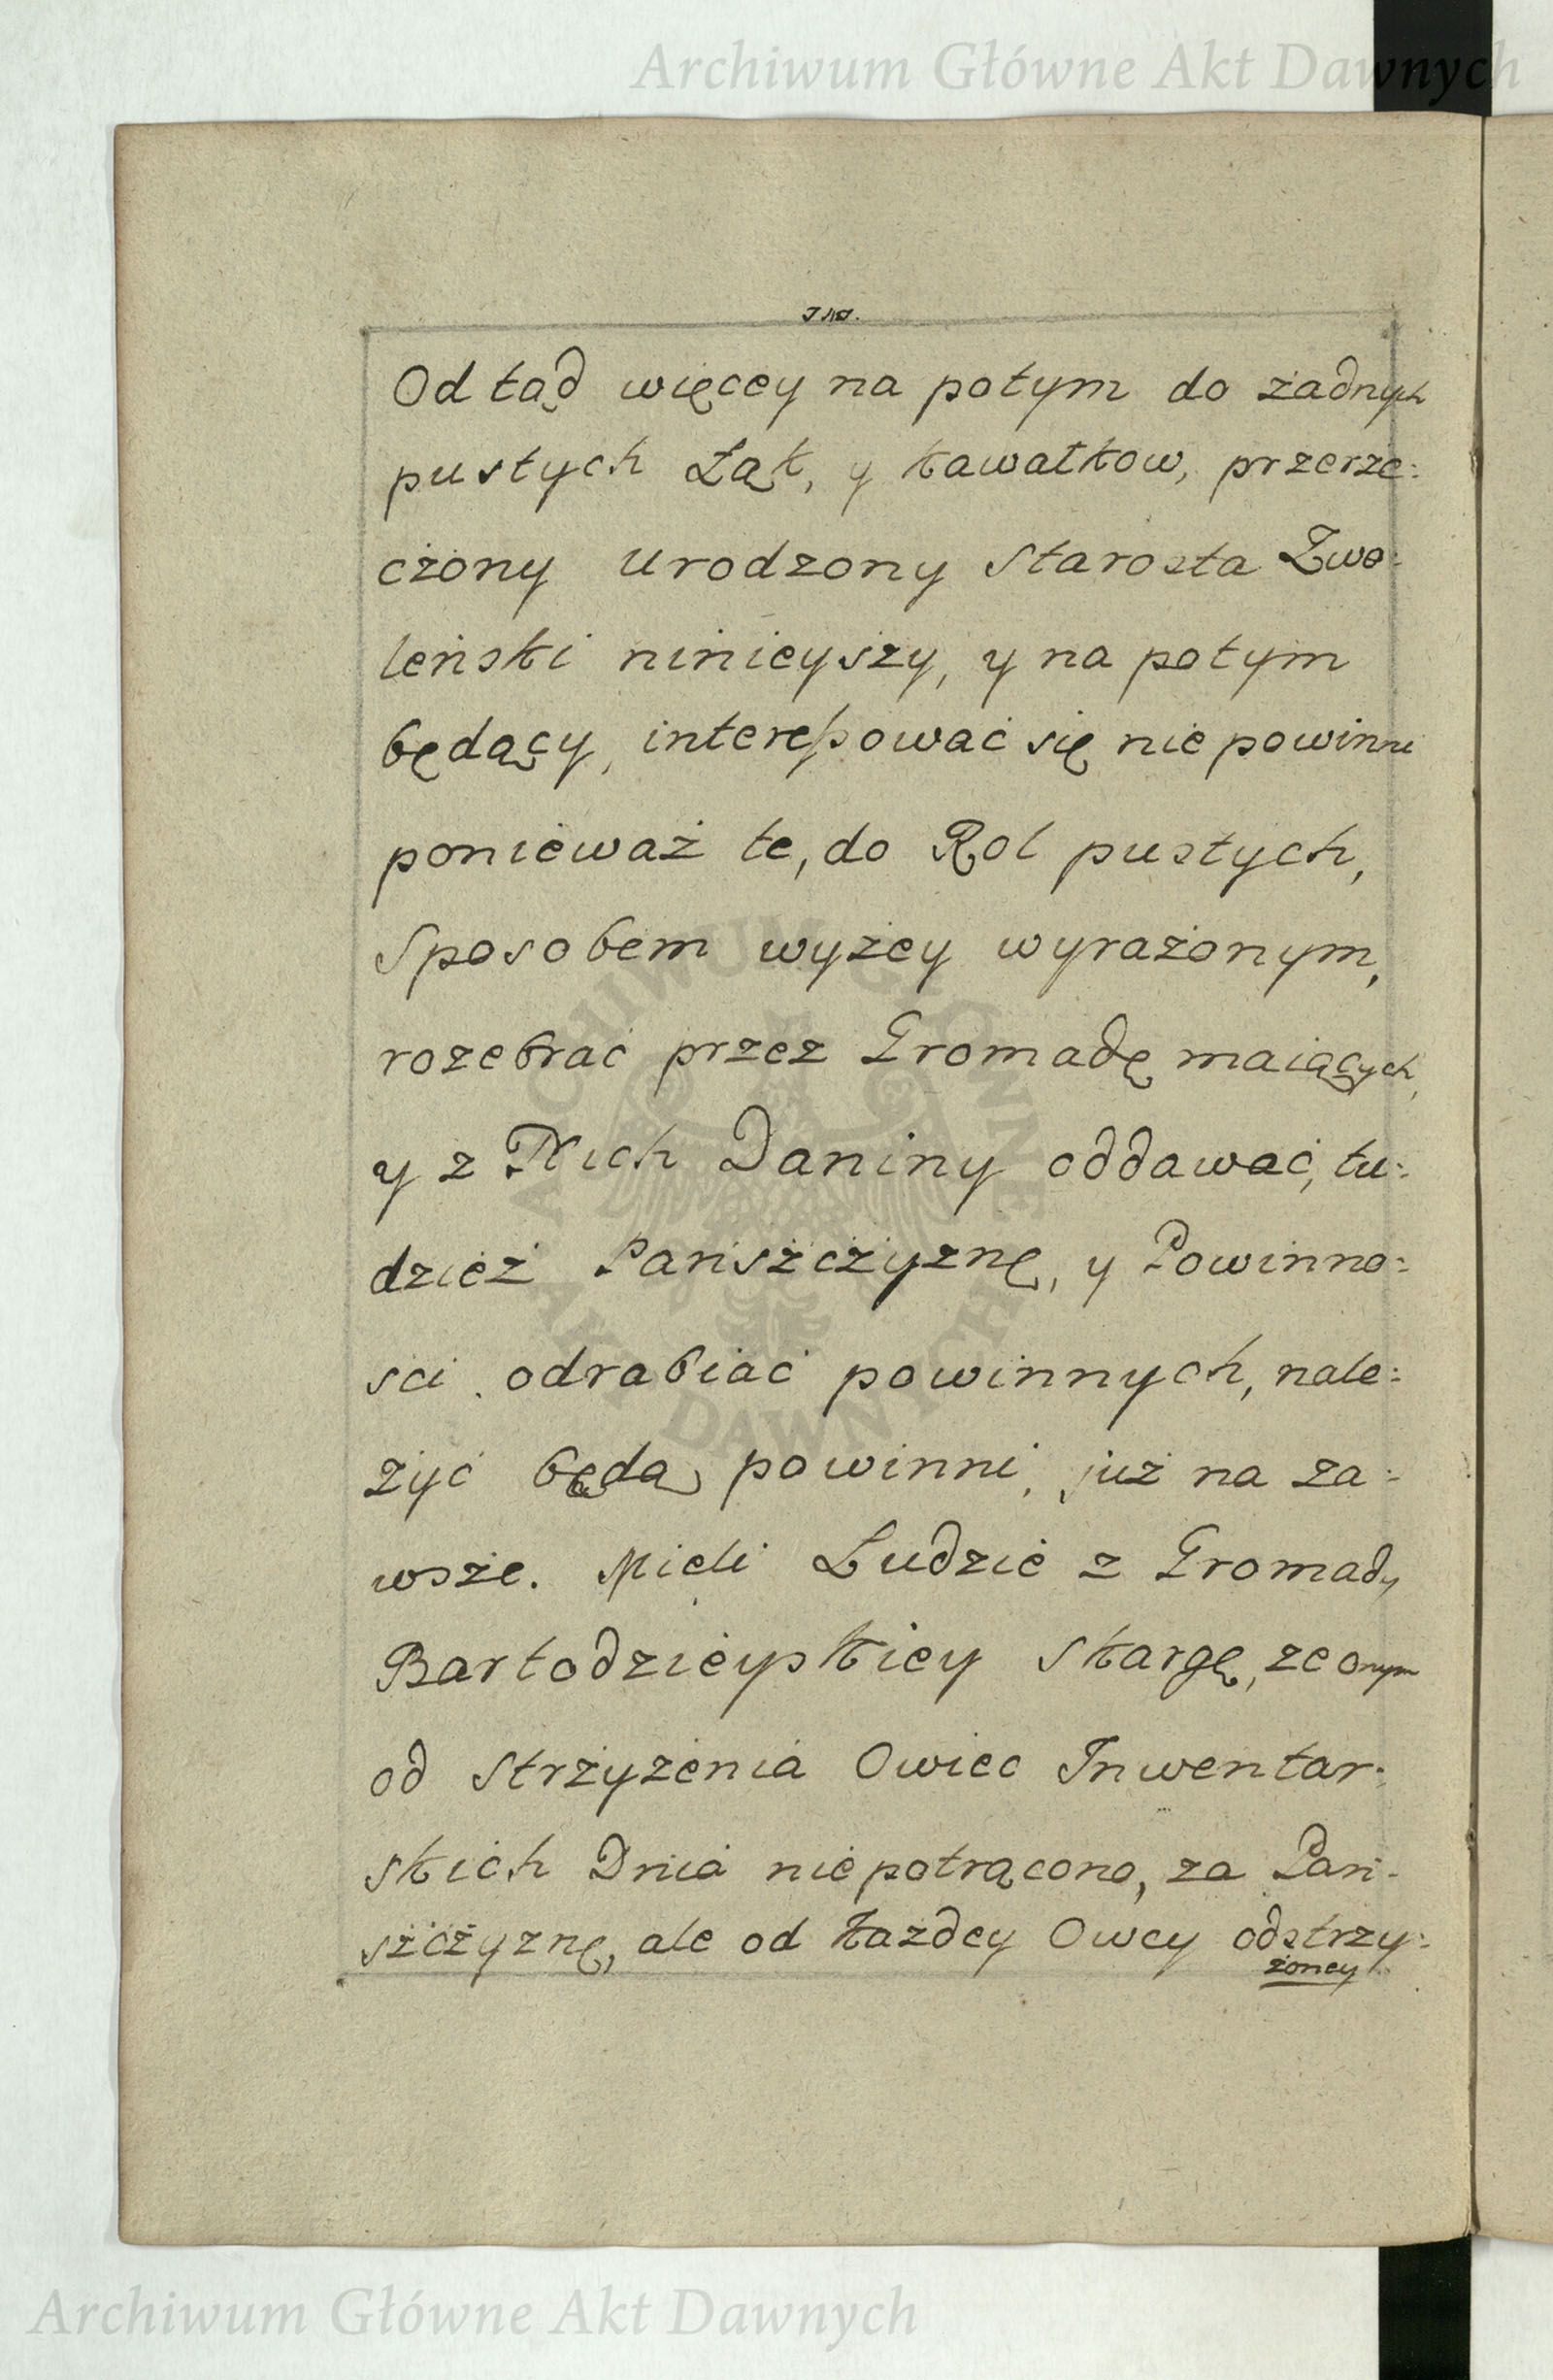 Archiwum Główne Akt Dawnych
Od tąd więcey na potym do żadnych
pustych Łąk, y kawałkow, przerze:
czony urodzony Starosta Zwo:
leński ninieyszy, y na potym
będący, interessować się nie powinni
ponieważ te, do Rol pustych,
Sposobem wyżey wyrażonym,
rozebrać przez Gromadę maiących,
y z Nich Daniny oddawać, tu:
dzież Pańszczyznę, y Powinno:
sci odrabiać powinnych, nale:
żyć będą powinni, już na za:
wsze. Mieli Ludzie z Gromady
Bartodzieyskiey skargę, ze onym
od Strzyżenia Owiec Inwentar:
skich Dnia nie potrącono, za Pań:
szczyznę, ale od każdey Owcy odstrzy:
żoney
ARCHIWUM GŁÓWNE AKT DAWNYCH
Archiwum Główne Akt Dawnych